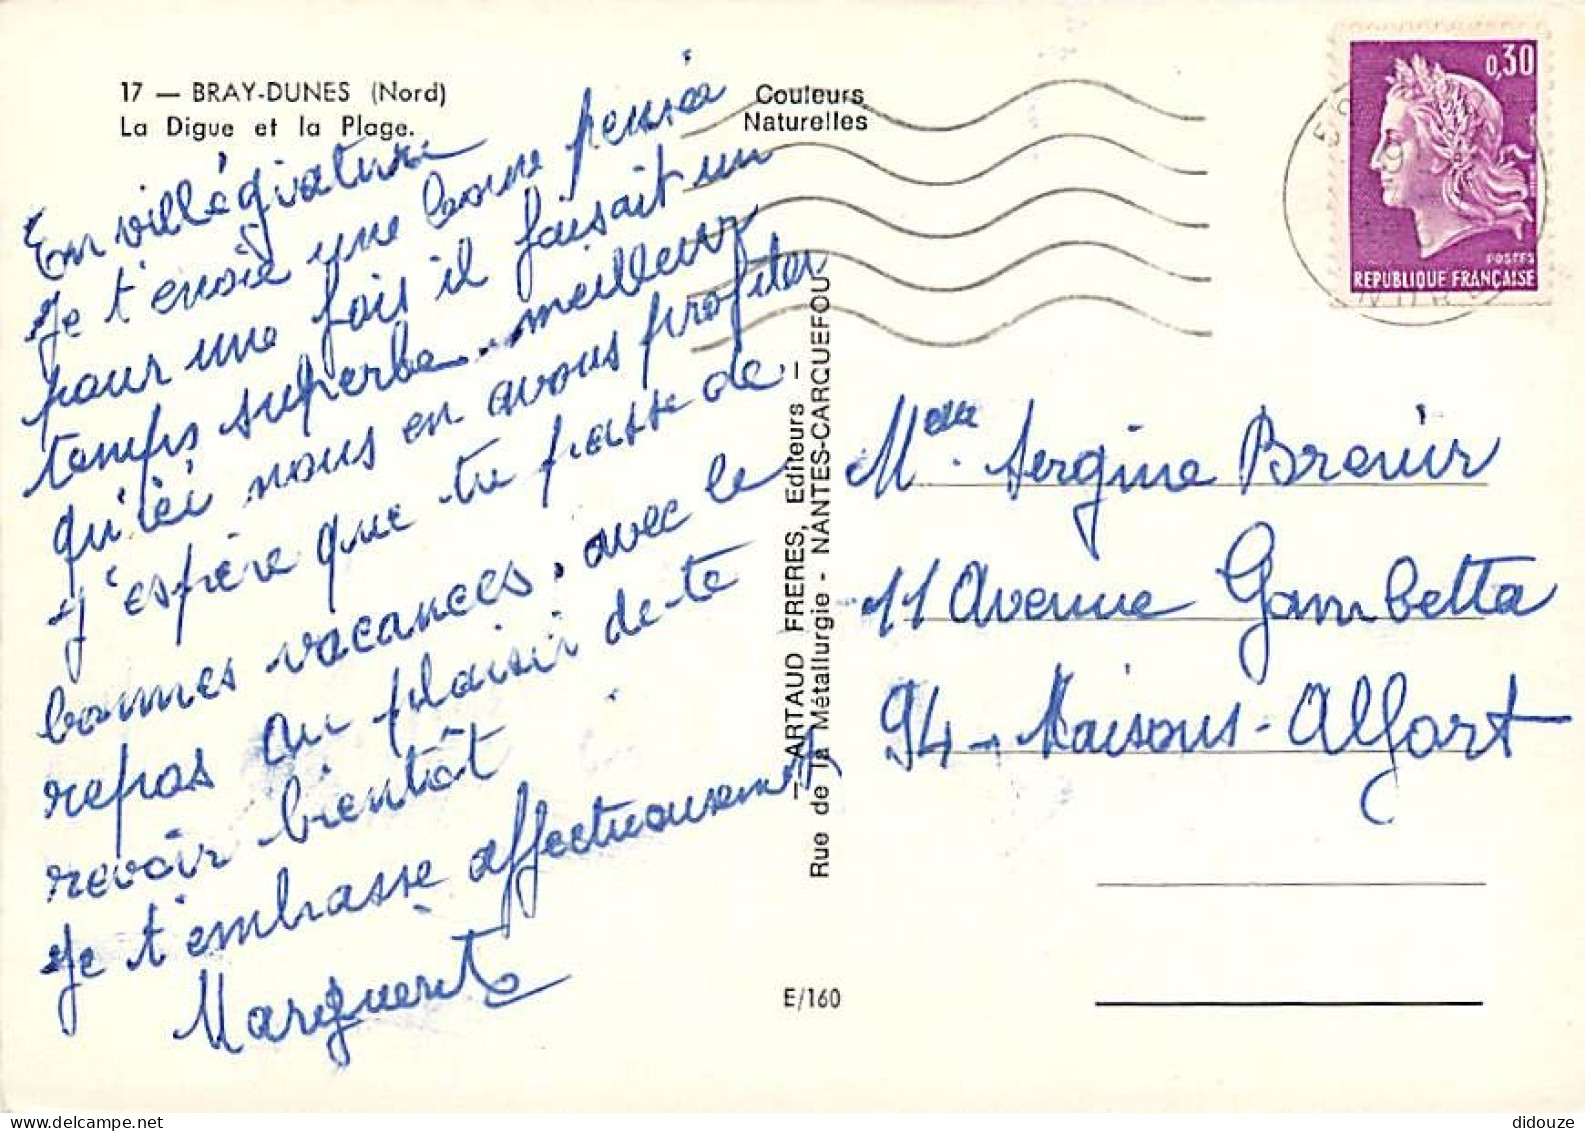 17 — BRAY-DUNES (Nord)
La Digue et la Plage.
Couleurs
Naturelles
0,30
POSTES
REPUBLIQUE FRANÇAISE
En villégiature
Je t'envoie une bonne pensée
pour une fois il faisait un
temps superbe. meilleur
qu'ici nous en avons profiter
j'espère que tu passe de
bonnes vacances. avec le
repos au plaisir de te
revoir bientôt
Je t'embrasse affectueusement
Marguerite
ARTAUD FRERES, Editeurs —
Rue de la Métallurgie - NANTES-CARQUEFOU
E/160
Melle. Sergine Brenir
11 Avenue Gambetta
94 - Maisons-Alfort
didouze